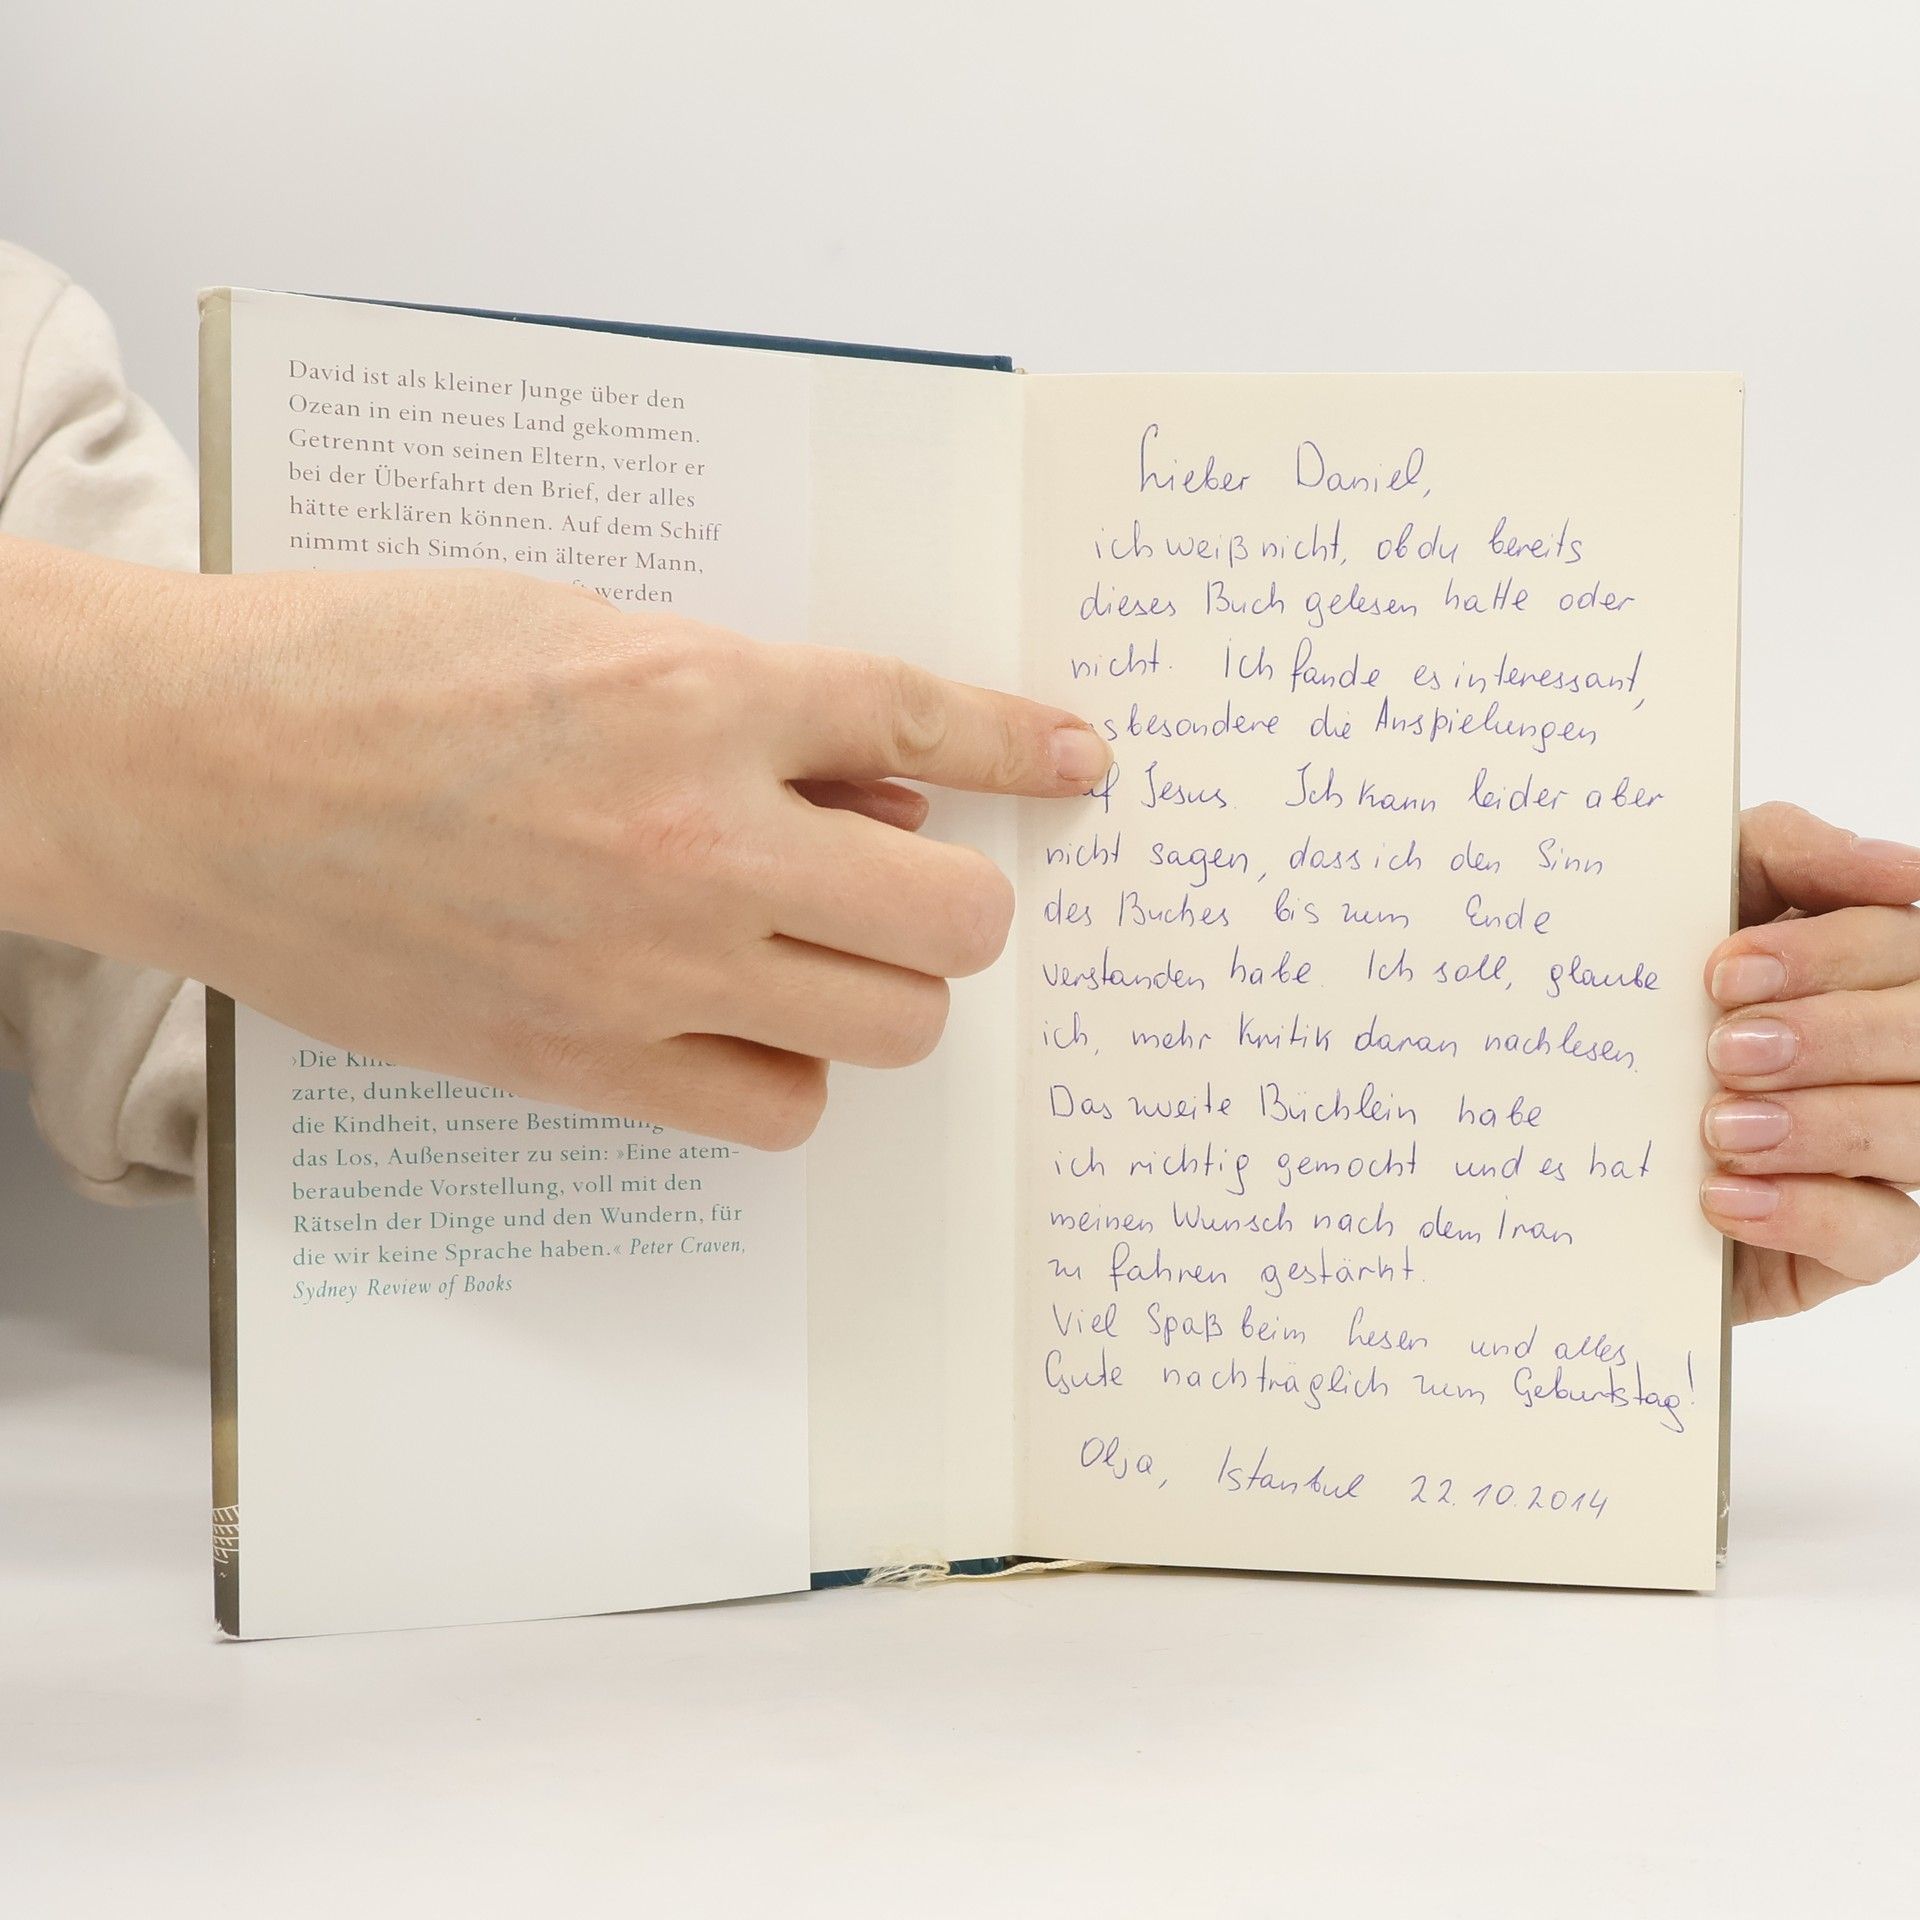 David ist als kleiner Junge über den
Ozean in ein neues Land gekommen.
Getrennt von seinen Eltern, verlor er
bei der Überfahrt den Brief, der alles
hätte erklären können. Auf dem Schiff
nimmt sich Simón, ein älterer Mann,
werden
›Die
zarte,
die Kindheit, unsere
das Los, Außenseiter zu sein: »Eine atem-
beraubende Vorstellung, voll mit den
Rätseln der Dinge und den Wundern, für
die wir keine Sprache haben.« Peter Craven,
Sydney Review of Books
Lieber Daniel,
ich weiß nicht, ob du bereits
dieses Buch gelesen hatte oder
nicht. Ich fande es interessant,
sbesondere die Anspielungen
f Jesus. Ich kann leider aber
nicht sagen, dass ich den Sinn
des Buches bis zum Ende
verstanden habe. Ich soll, glaube
ich, mehr Kritik daran nachlesen.
Das zweite Büchlein habe
ich richtig gemocht und es hat
meinen Wunsch nach dem Iran
zu fahren gestärkt.
Viel Spaß beim Lesen und alles
Gute nachträglich zum Geburtstag!
Olja, Istanbul 22.10.2014